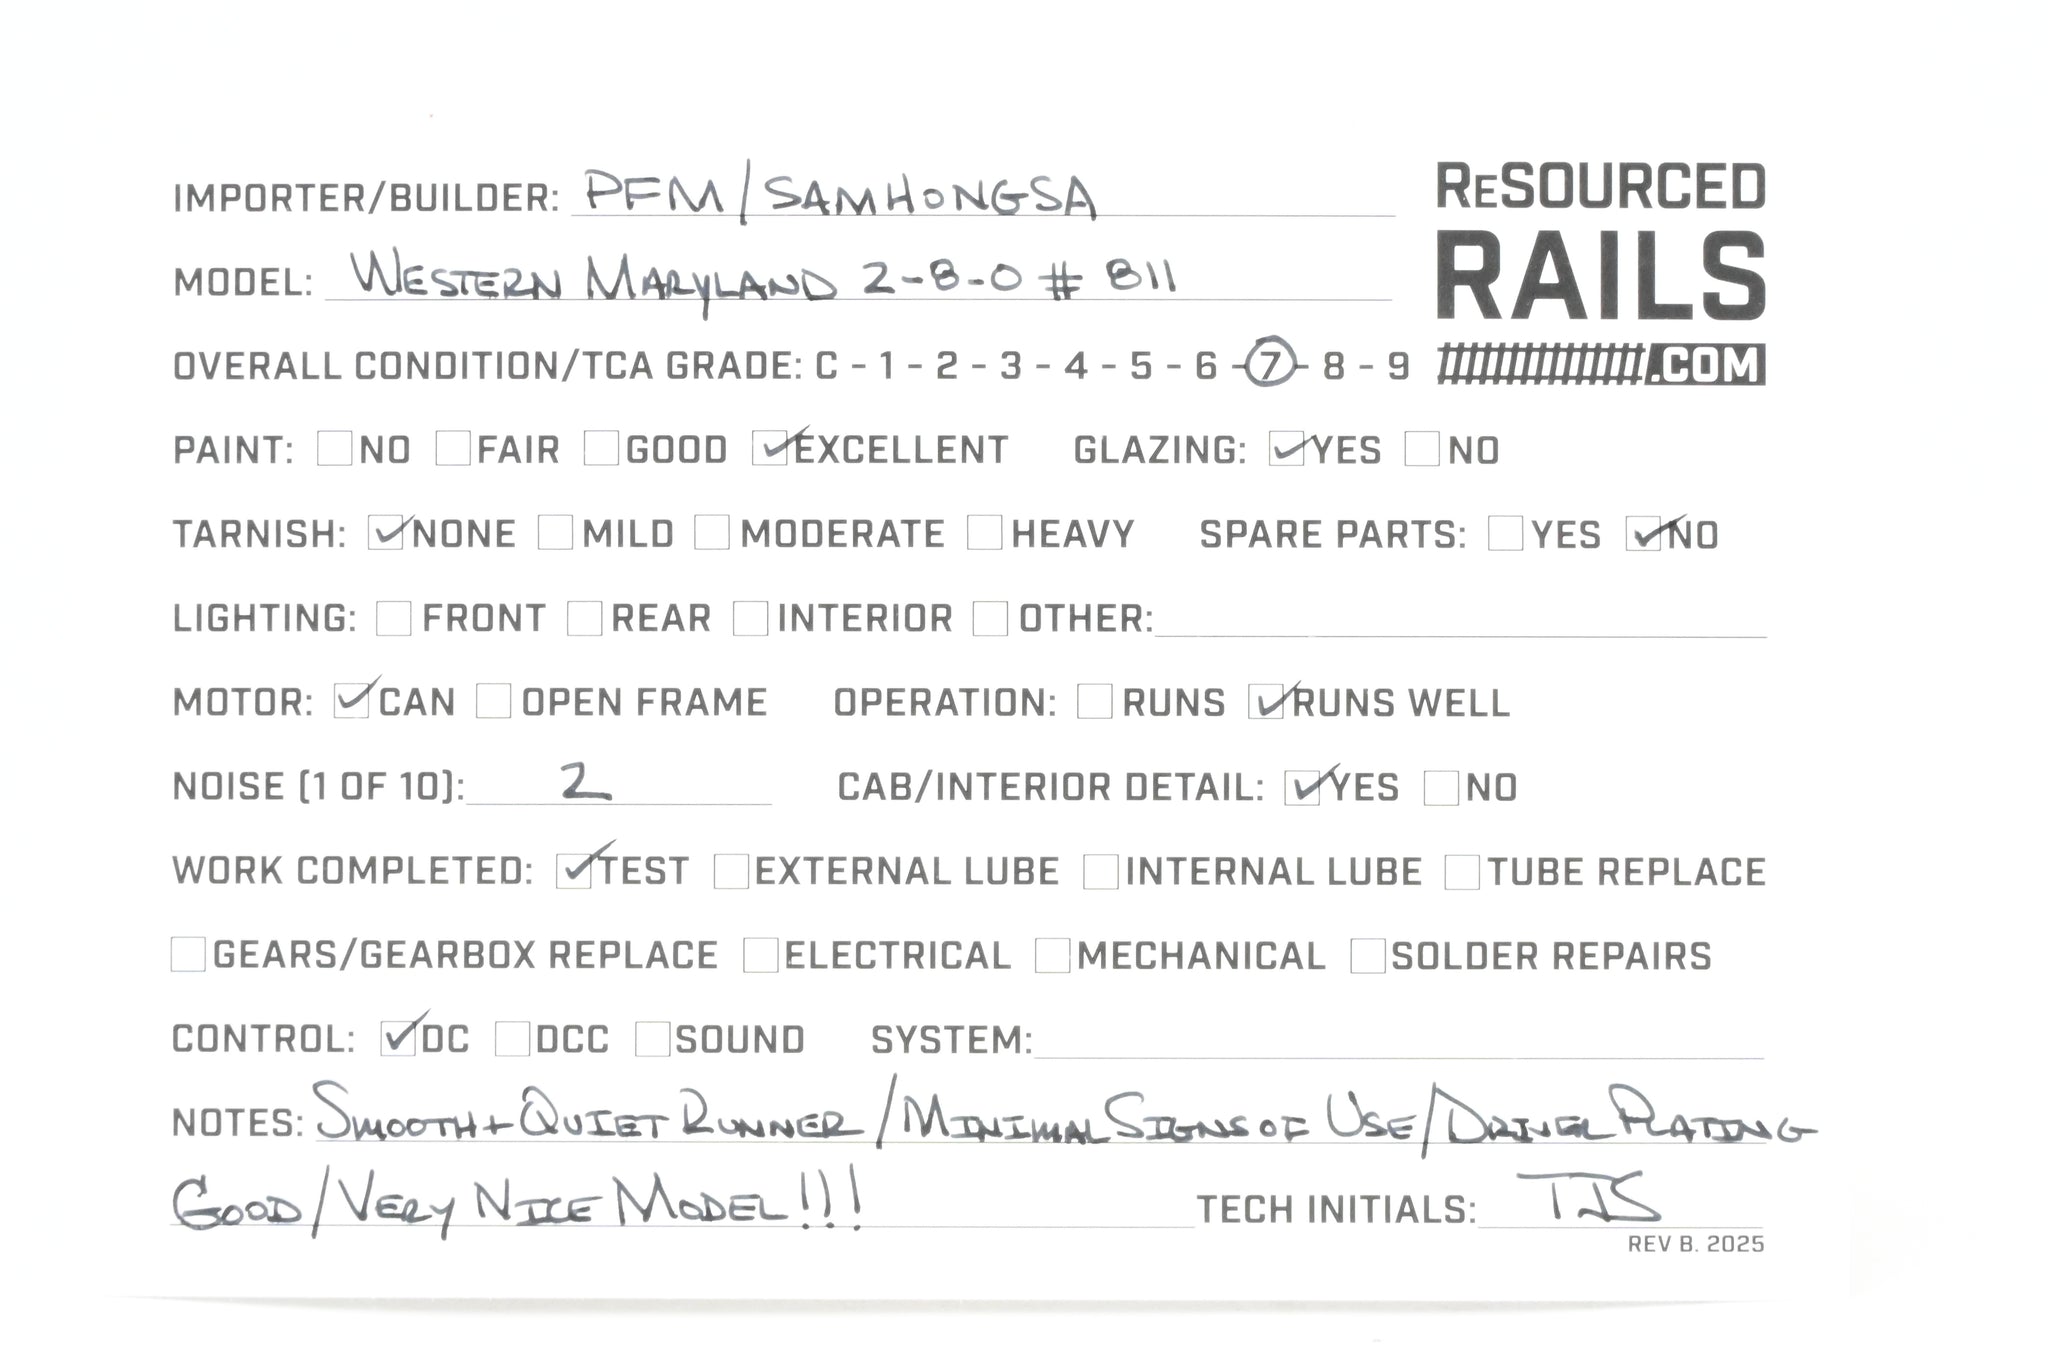 IMPORTER/BUILDER: PFM/SAMHONGSA
RESOURCED
RAILS
.COM
MODEL: WESTERN MARYLAND 2-8-0 # 811
OVERALL CONDITION/TCA GRADE: C - 1 - 2 - 3 - 4 - 5 - 6 - 7 - 8 - 9
PAINT: NO FAIR GOOD ✓EXCELLENT GLAZING: ✓YES NO
TARNISH: ✓NONE MILD MODERATE HEAVY SPARE PARTS: YES ✓NO
LIGHTING: FRONT REAR INTERIOR OTHER:
MOTOR: ✓CAN OPEN FRAME OPERATION: RUNS ✓RUNS WELL
NOISE (1 OF 10): 2 CAB/INTERIOR DETAIL: ✓YES NO
WORK COMPLETED: ✓TEST EXTERNAL LUBE INTERNAL LUBE TUBE REPLACE
GEARS/GEARBOX REPLACE ELECTRICAL MECHANICAL SOLDER REPAIRS
CONTROL: ✓DC DCC SOUND SYSTEM:
NOTES: SMOOTH + QUIET RUNNER / MINIMAL SIGNS OF USE / DRIVER PLATING
GOOD / VERY NICE MODEL!!! TECH INITIALS: TJS
REV B. 2025